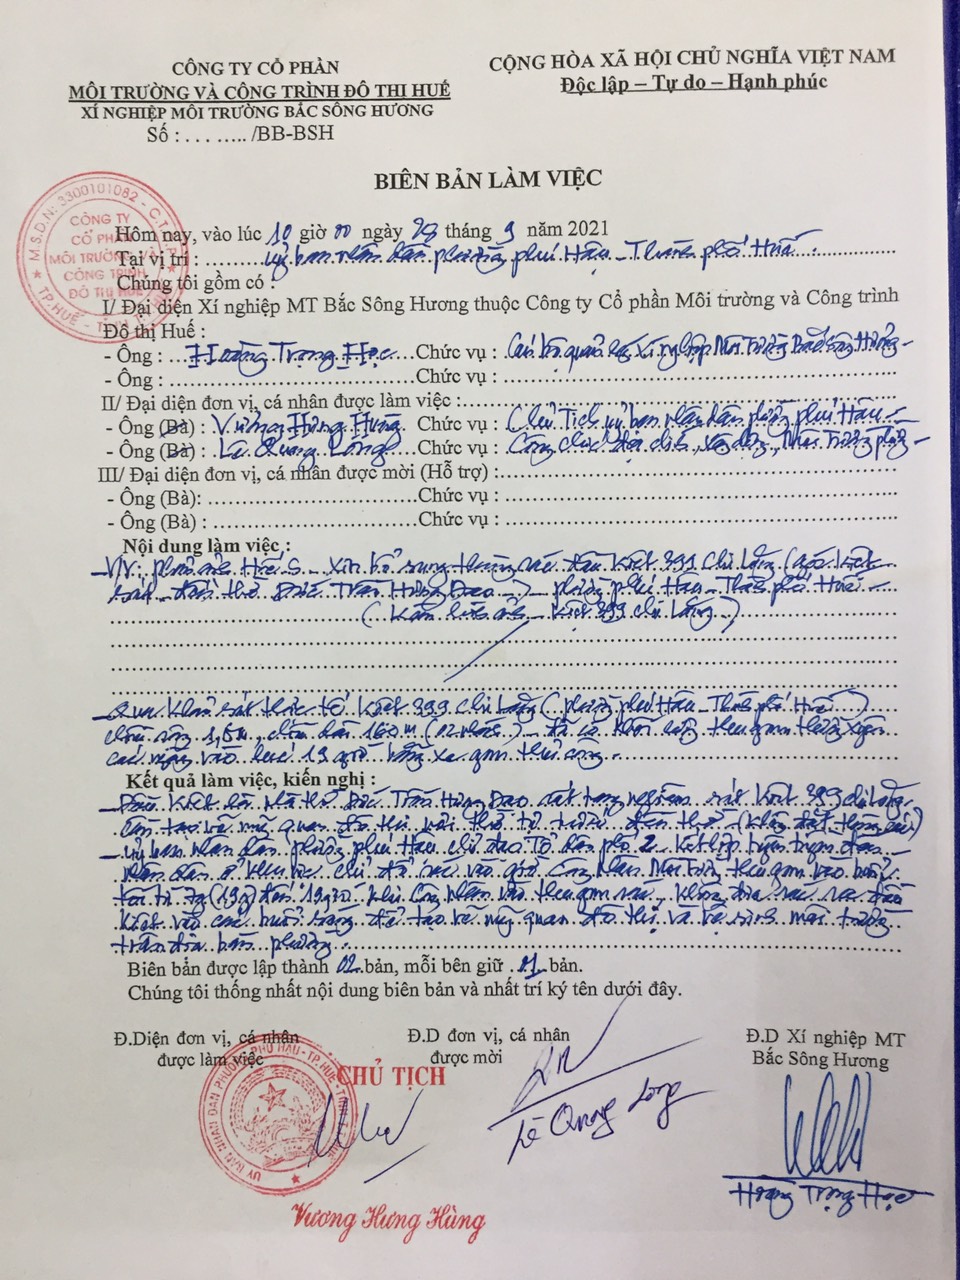 CÔNG TY CỔ PHẦN
MÔI TRƯỜNG VÀ CÔNG TRÌNH ĐÔ THỊ HUẾ
XÍ NGHIỆP MÔI TRƯỜNG BẮC SÔNG HƯƠNG
Số : . . . ..... /BB-BSH
CỘNG HÒA XÃ HỘI CHỦ NGHĨA VIỆT NAM
Độc lập – Tự do – Hạnh phúc
BIÊN BẢN LÀM VIỆC
M.S.D.N: 3300101082 - C.T.C.P
CÔNG TY
CỔ PHẦN
MÔI TRƯỜNG VÀ
CÔNG TRÌNH
ĐÔ THỊ HUẾ
TP.HUẾ - TỈNH T.T.HUẾ
Hôm nay, vào lúc 10 giờ 00 ngày 28 tháng 9 năm 2021
Tại vị trí : Uỷ ban nhân dân phường phú Hậu - Thành phố Huế
Chúng tôi gồm có :
I/ Đại diện Xí nghiệp MT Bắc Sông Hương thuộc Công ty Cổ phần Môi trường và Công trình
Đô thị Huế :
- Ông : Hoàng Trọng Học Chức vụ : Cán bộ quản lý Xí nghiệp Môi Trường Bắc Sông Hương
- Ông : Chức vụ :
II/ Đại diện đơn vị, cá nhân được làm việc :
- Ông (Bà) : Vương Hưng Hùng Chức vụ : Chủ Tịch uỷ ban nhân dân phường phú Hậu
- Ông (Bà) : Lê Quang Long Chức vụ : Công chức địa chính xây dựng Môi Trường phường
III/ Đại diện đơn vị, cá nhân được mời (Hỗ trợ) :
- Ông (Bà): Chức vụ :
- Ông (Bà) : Chức vụ :
Nội dung làm việc :
V/v: phản ánh Huế S Xin bổ sung thùng rác đầu kiệt 399 Chi Lăng (góc kiệt
đền thờ Đức Trần Hưng Đạo) phường phú Hậu Thành phố Huế
( kèm hình ảnh kiệt 399 chi Lăng )
Qua khảo sát thực tế kiệt 399 Chi Lăng (phường phú Hậu Thành phố Huế)
chiều rộng 1,5m chiều dài 160 m đã có thu gom thường xuyên
các ngày vào lúc 19 giờ bằng xe gom thủ công
Kết quả làm việc, kiến nghị :
- Đầu kiệt là nhà thờ Đức Trần Hưng Đạo rất kiệt 399 chi Lăng
cần tạo vẽ mỹ quan đô thị đền thờ (không đặt thùng rác)
- Uỷ ban nhân dân phường phú Hậu chỉ đạo Tổ dân phố 2 kết hợp tuyên truyền đến
nhân dân ở khu vực chỉ đổ rác vào giờ Công nhân Môi Trường thu gom vào buổi
tối từ 19 đến 19 giờ khi Công nhân vào thu gom rác không đưa rác ra đầu
kiệt vào các buổi sáng để tạo vẽ mỹ quan đô thị và vệ sinh môi trường
trên địa bàn phường
Biên bản được lập thành 02 bản, mỗi bên giữ 01 bản.
Chúng tôi thống nhất nội dung biên bản và nhất trí ký tên dưới đây.
Đ.Diện đơn vị, cá nhân
được làm việc
Đ.D đơn vị, cá nhân
được mời
Đ.D Xí nghiệp MT
Bắc Sông Hương
CHỦ TỊCH
ỦY BAN NHÂN DÂN PHƯỜNG PHÚ HẬU - TP.HUẾ
Lê Quang Long
Hoàng Trọng Học
Vương Hưng Hùng